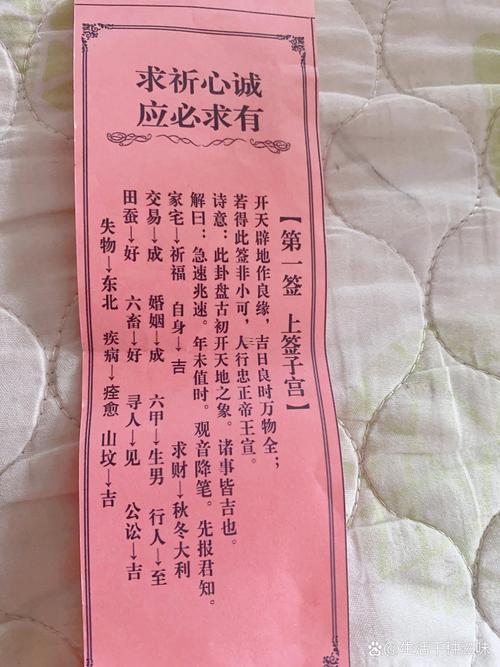 求祈心诚
应必求有
【第一签 上签子宫】
开天辟地作良缘，吉日良时万物全；
若得此签非小可，人行忠正帝王宣。
诗意：此卦盘古初开天地之象。诸事皆吉也。
解曰：急速兆速。年未值时。观音降笔。先报君知。
家宅→祈福 自身→吉 求财→秋冬大利
交易→成 婚姻→成 六甲→生男 行人→至
田蚕→好 六畜→好 寻人→见 公讼→吉
失物→东北 疾病→痊愈 山坟→吉
生活千种滋味